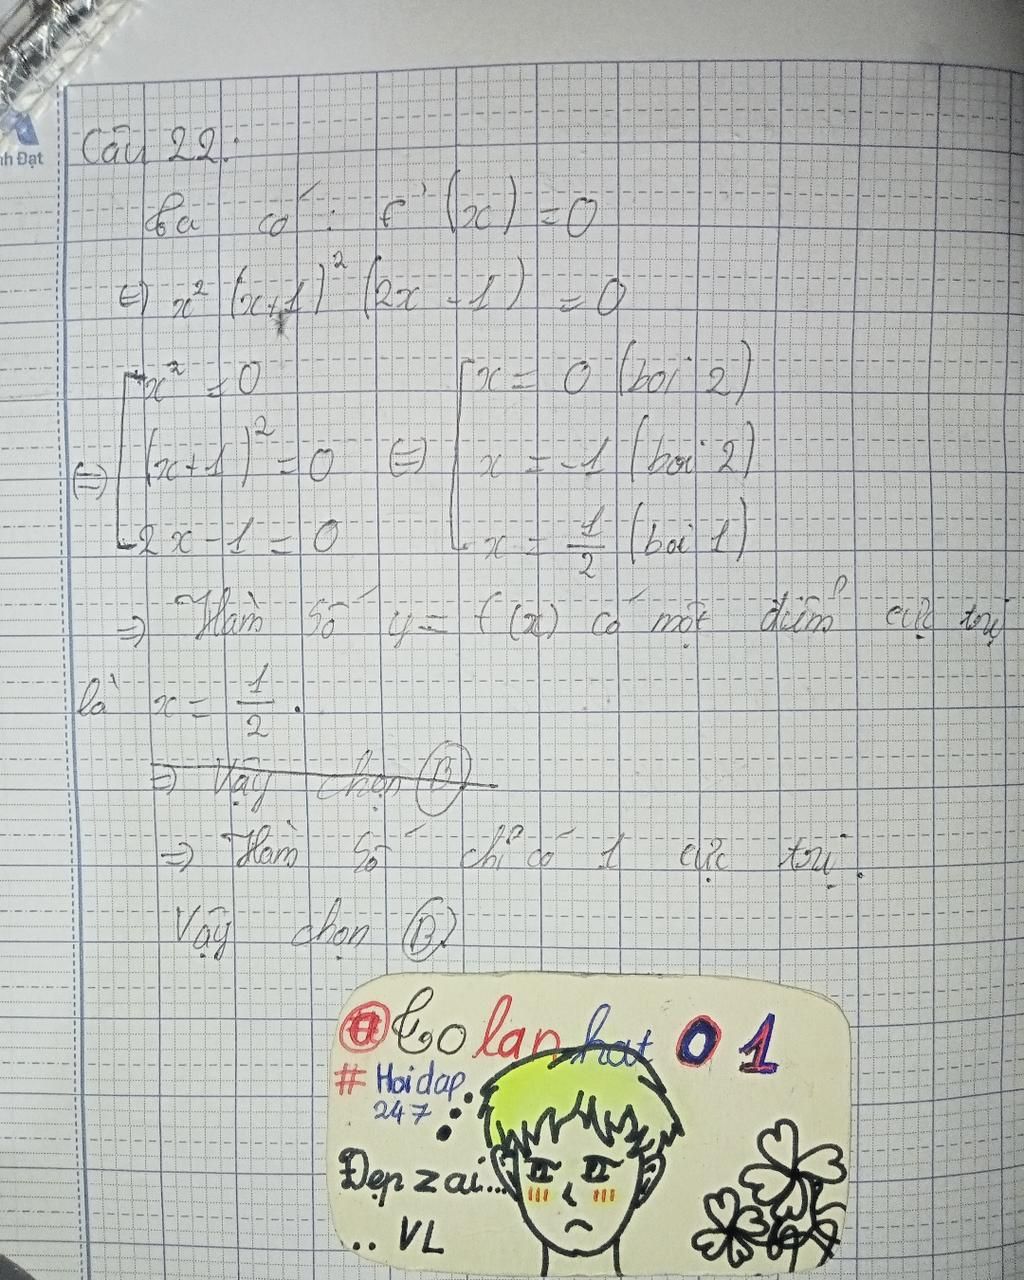 nh Đạt
Câu 22:
Ta có: f'(x) = 0
⇔ x² (x+1)² (2x - 1) = 0
⇔ [ x² = 0 ⇔ [ x = 0 (bội 2)
(x+1)² = 0 x = -1 (bội 2)
2x - 1 = 0 x = 1/2 (bội 1)
⇒ Hàm số y = f(x) có một điểm cực trị
là x = 1/2.
⇒ Vậy chọn B
⇒ Hàm số chỉ có 1 cực trị.
Vậy chọn B
@ to lan hat 01
# Hoidap
247
Đẹp zai...
.. VL